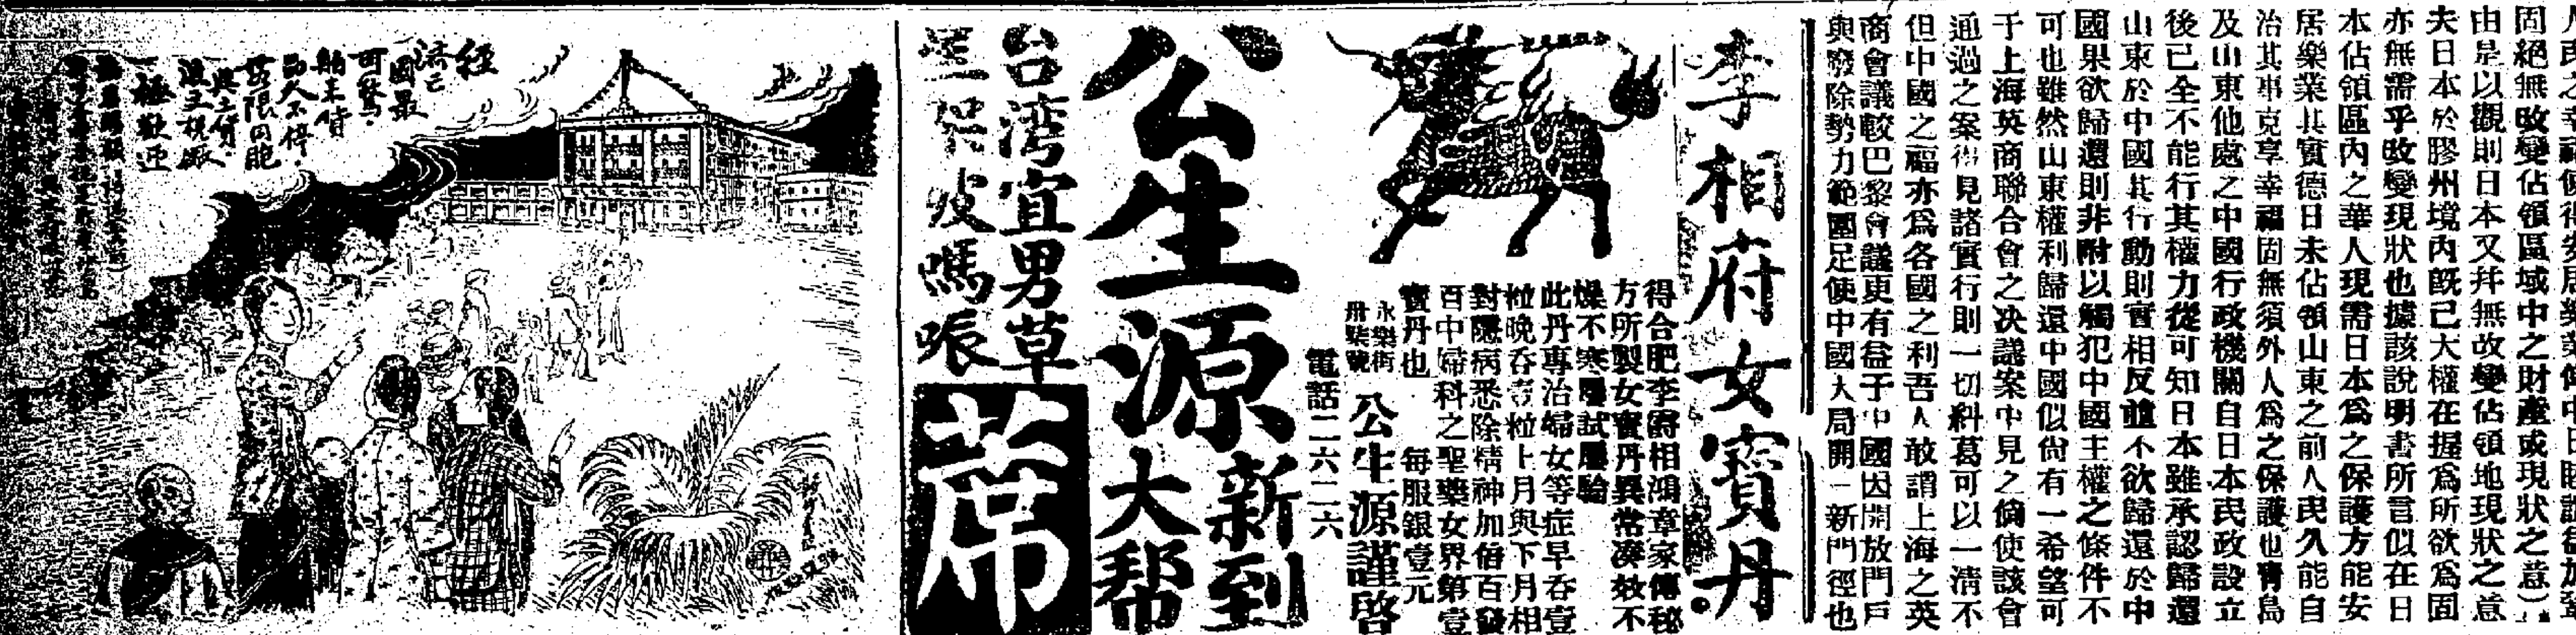 固絕無改變佔領區域中之財產或現狀之意）
由是以觀則日本又幷無故變佔領地現狀之意
夫日本於膠州境內既已大權在握爲所欲爲固
亦無需乎改變現狀也據該說明書所言似在日
本佔領區內之華人現需日本爲之保護方能安
居樂業其實德日未佔領山東之前人民久能自
治其事克享幸福固無須外人爲之保護也靑島
及山東他處之中國行政機關自日本民政設立
後已全不能行其權力從可知日本雖承認歸還
山東於中國其行動則實相反並不欲歸還於中
國果欲歸還則非附以觸犯中國主權之條件不
可也雖然山東權利歸還中國似尙有一希望可
于上海英商聯合會之決議案中見之倘使該會
通過之案得見諸實行則一切糾葛可以一淸不
但中國之福亦爲各國之利吾人敢謂上海之英
商會議較巴黎會議更有益于中國因開放門戶
與廢除勢力範圍足使中國大局開一新門徑也
李相府女寶丹
得合肥李爵相鴻章家傳秘
方所製女寶丹異常凑效不
燥不寒屢試屢驗
此丹專治婦女等症早呑壹
粒晚呑壹粒上月與下月相
對隱病悉除精神加倍百發
百中婦科之聖藥女界第壹
寶丹也 每服銀壹元
永樂街
公生源謹啓
電話二六二六
公生源新到大帮
台湾宜男草
席
經濟亡國最可驚
舶來貨
極歡迎